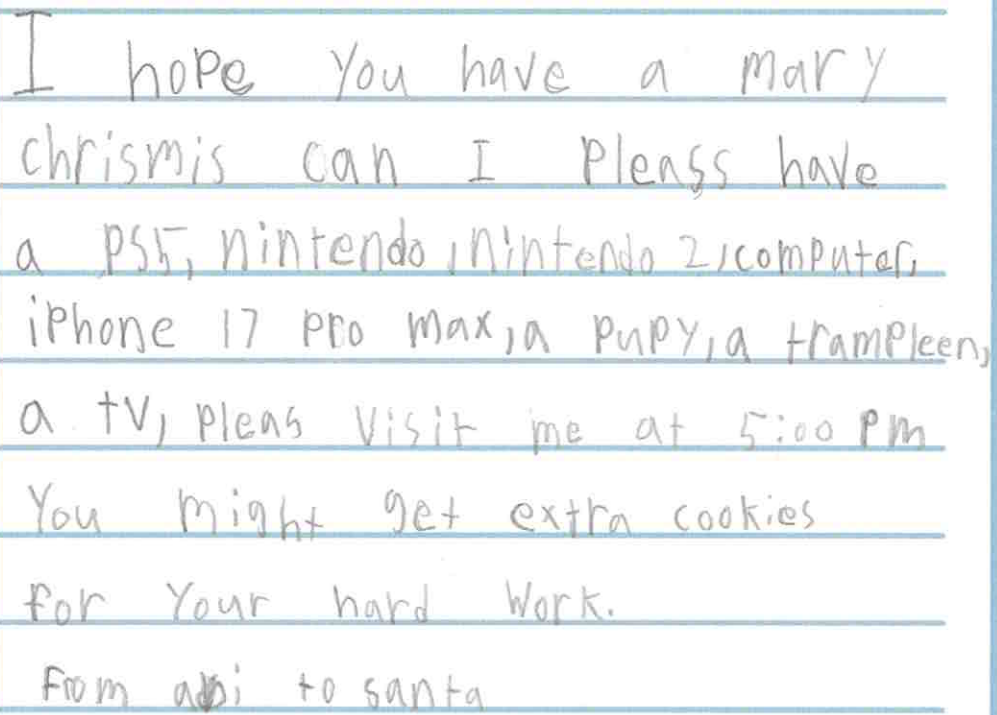 I hope you have a mary
chrismis can I pleass have
a ps5, nintendo, nintendo 2, computer,
iphone 17 pro max, a pupy, a trampleen,
a tv, pleas visit me at 5:00 pm
You might get extra cookies
for your hard work.
From to santa